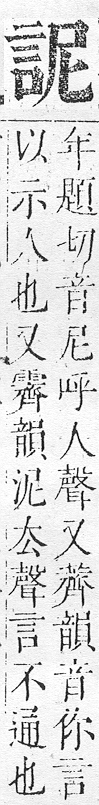 詆
年題切音尼呼人聲又薺韻音伱言
以示人也又霽韻泥去聲言不通也